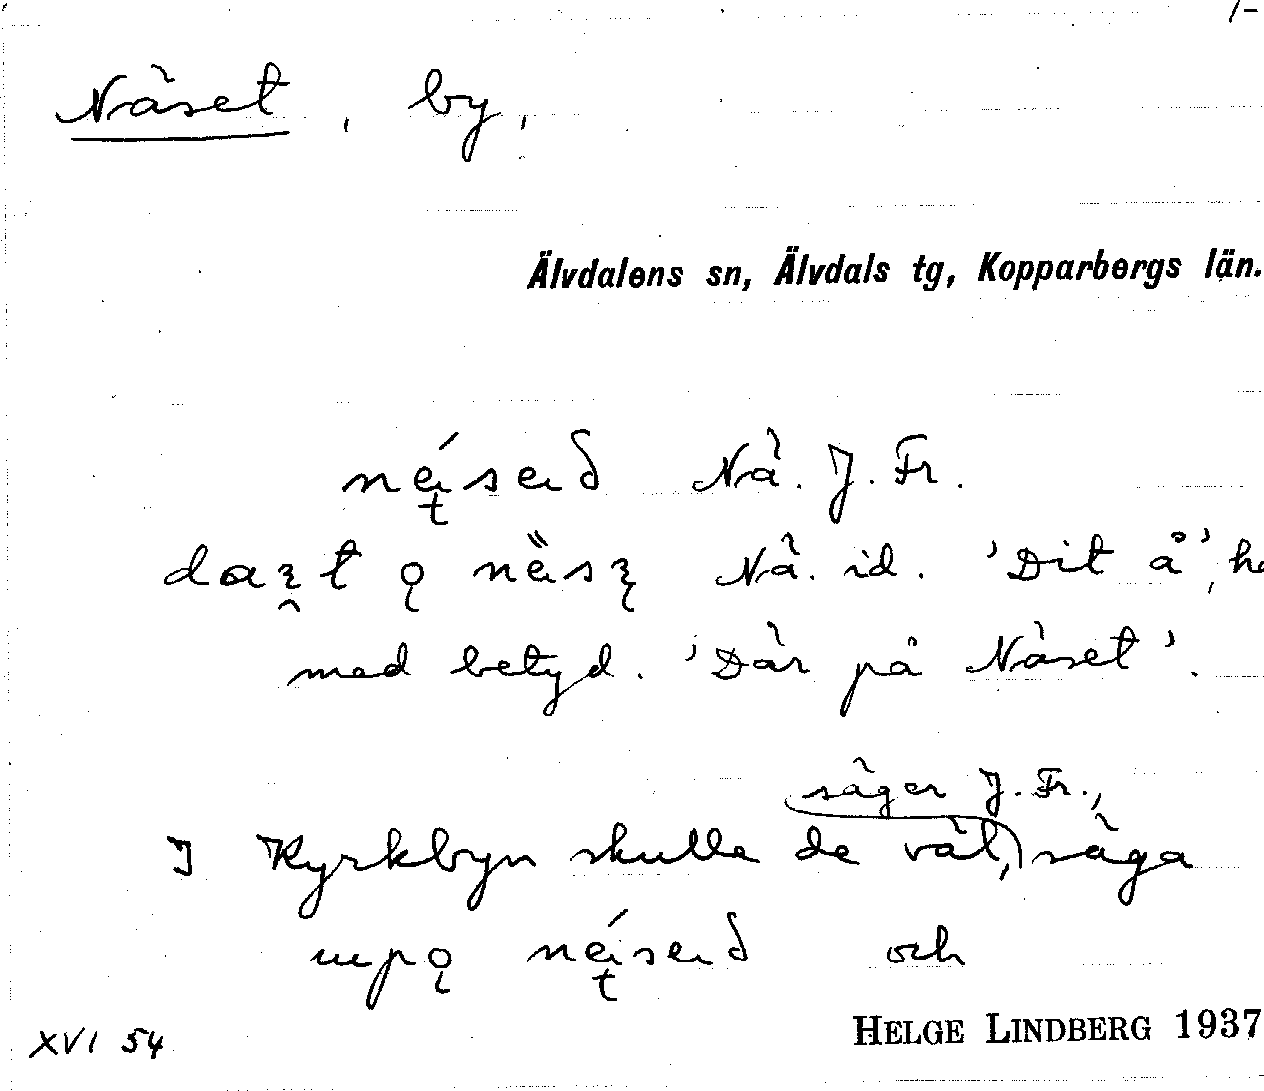 1-
Näset, by,
Älvdalens sn, Älvdals tg, Kopparbergs län.
Nä. J. Fr.
Nä. id. 'Dit å',
med betyd. 'Där på Näset'.
säger J. Fr.,
I Kyrkbyn skulle de väl, säga
och
XVI 54
HELGE LINDBERG 1937